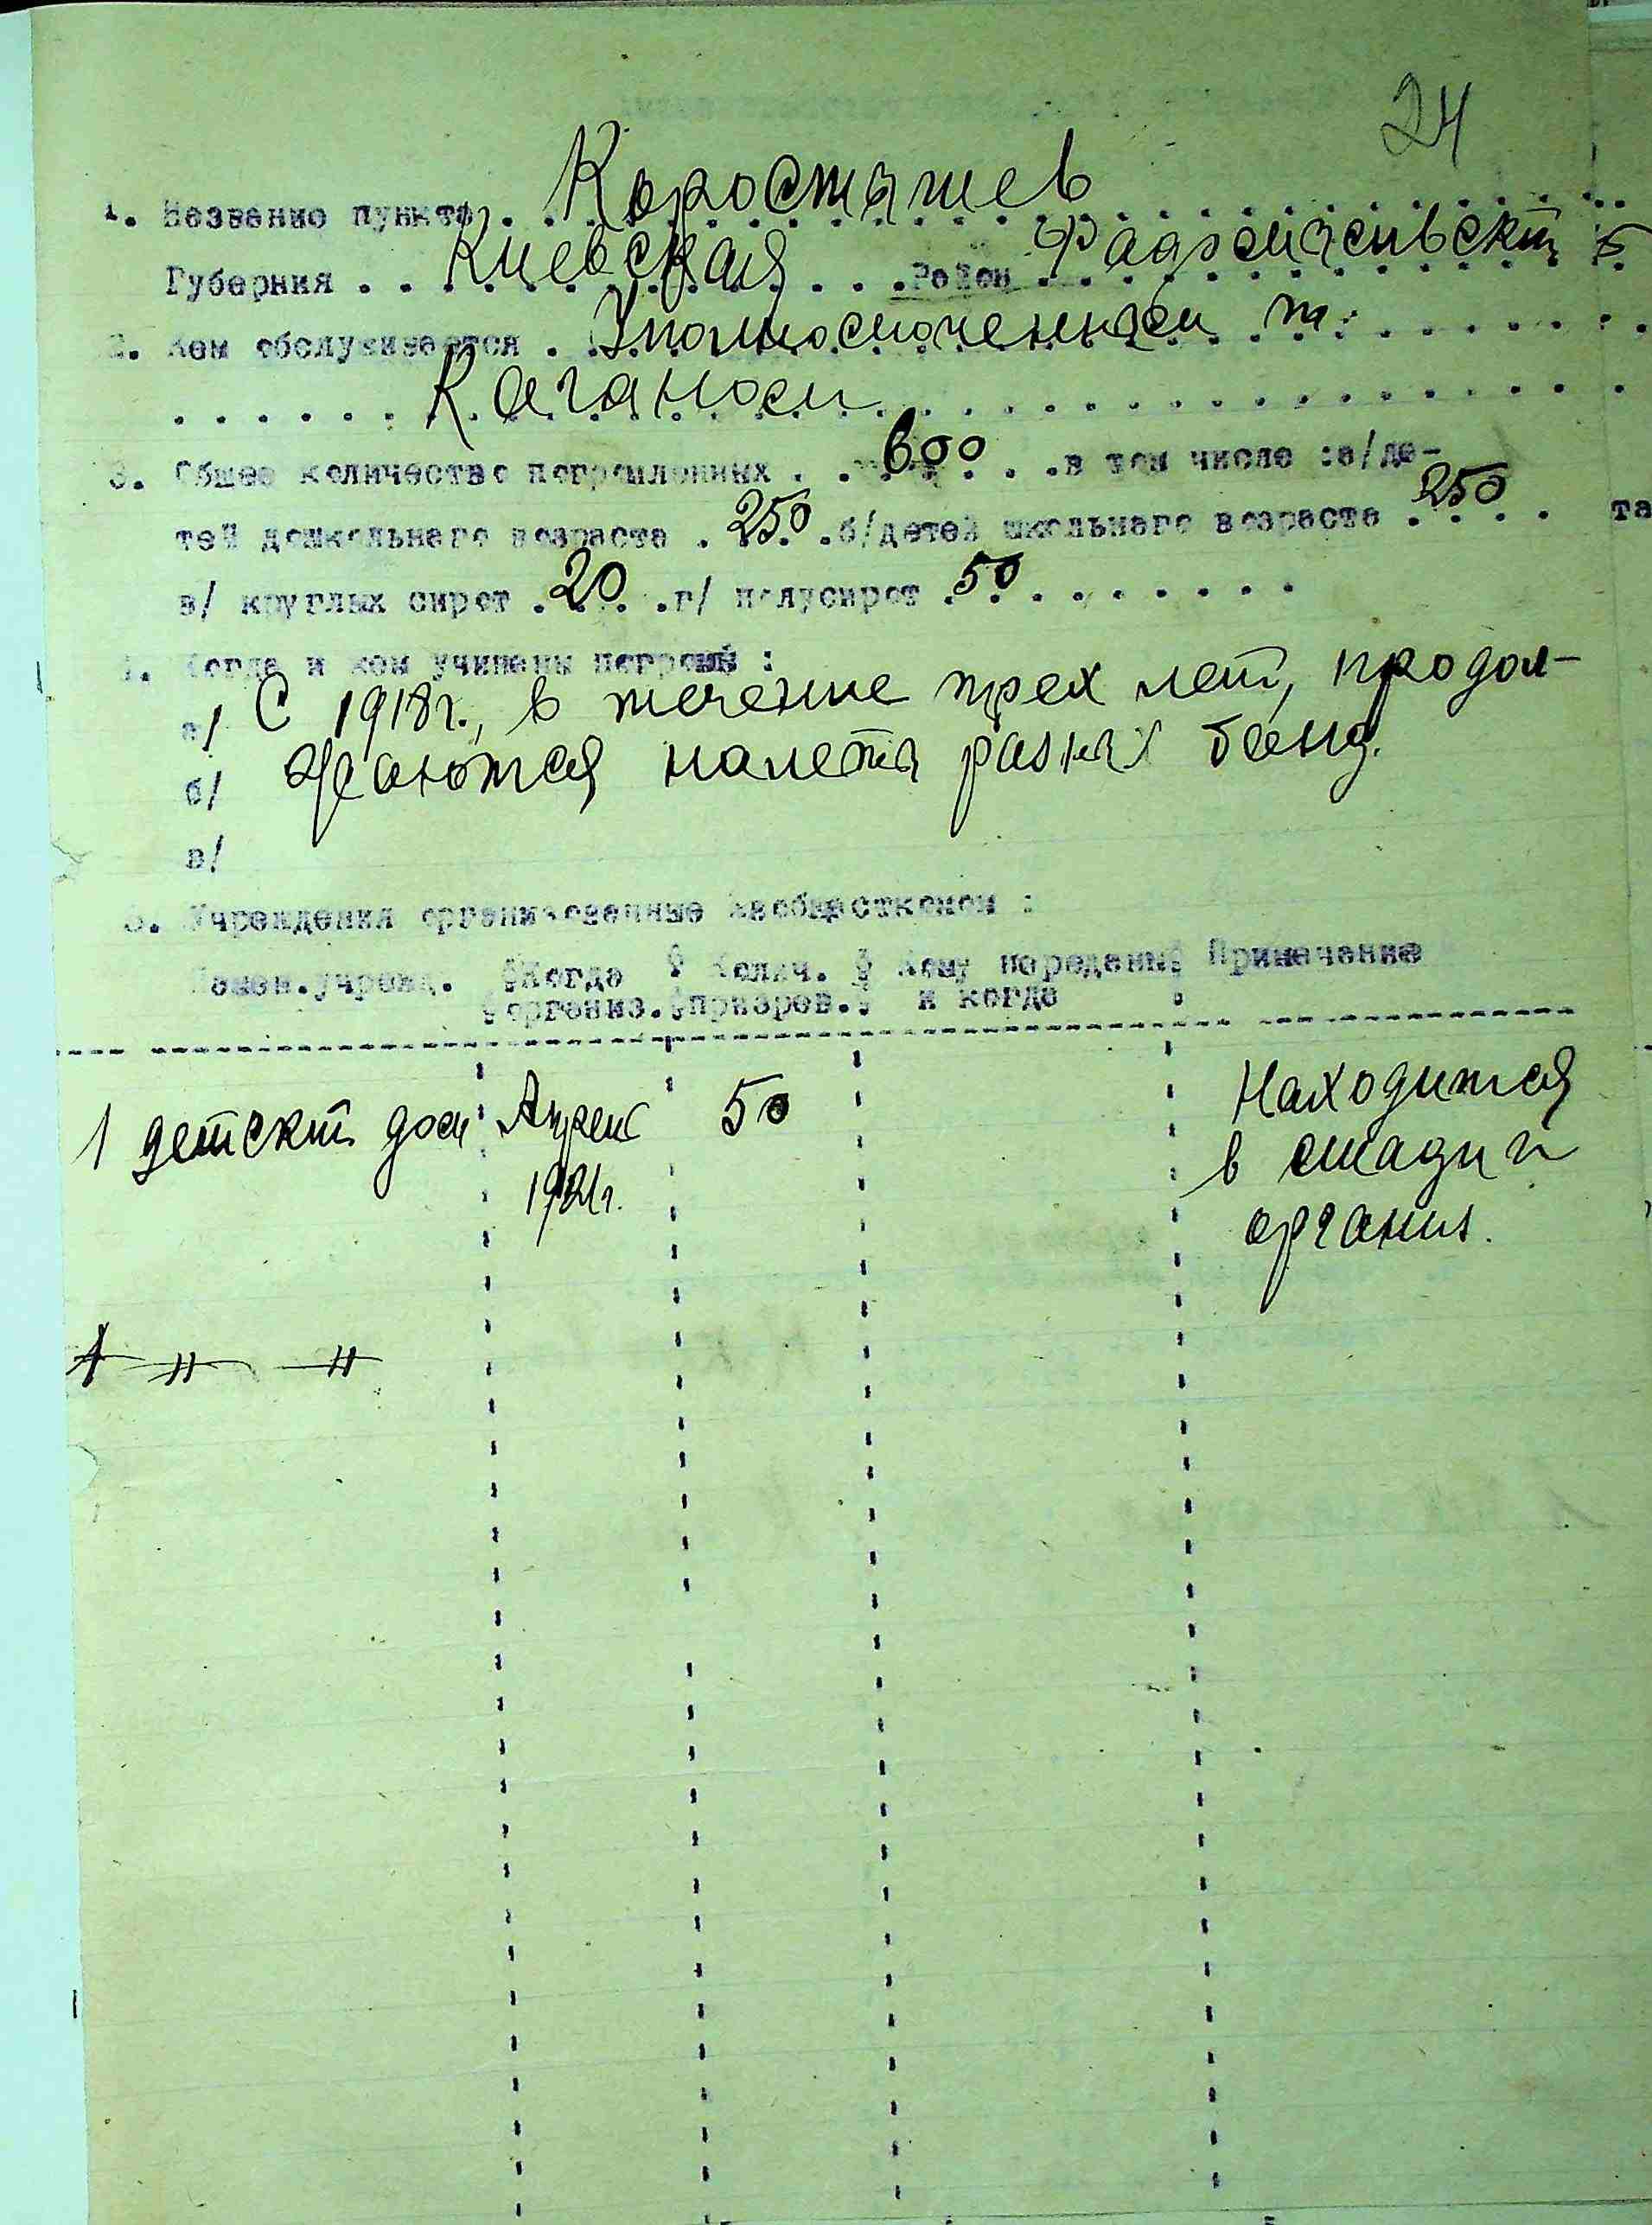 24
1. Название пункта . Коростышев
Губерния . . Киевская . . . Район . Радомысльский
2. Кем обслуживается . Уполномоченным т.
. . . . . . Каганом
3. Общее количество погромленных . . 600 . . .в том числе :а/де-
тей дошкольнаго возраста . 250 .б/детей школьнаго возраста . 250 . . та
в/ круглых сирот . 20 . .г/ полусирот . 50 . . . . . . .
4. Когда и кем учинены погромы :
а/ С 1918г., в течение трех лет, продол-
б/ жаются налеты разных банд.
в/
5. Учреждения организованные Евобщесткомом :
Наимен.учрежд. Когда Колич. Кому переданы Примечание
организ. призрев. и когда
1 детский дом Апрель 50 Находится
1921г. в стадии
организ.
1 —〃— —〃—